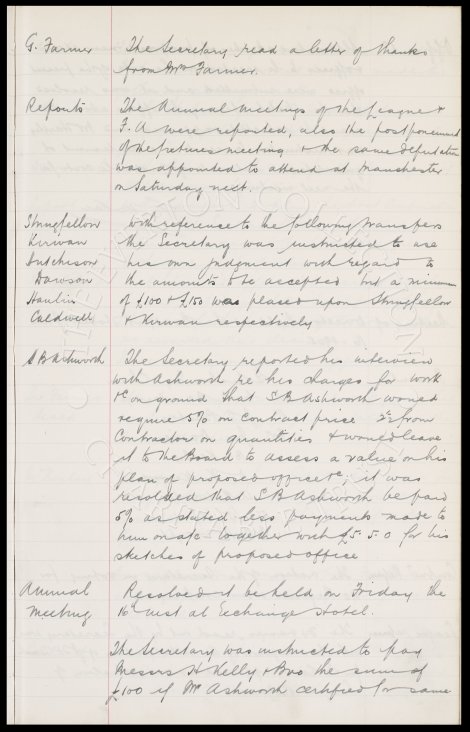 G. Farmer The Secretary read a letter of thanks
from Mrs Farmer.
Reports The Annual Meetings of the League &
F. A were reported, also the postponement
of the fixtures meeting & the same deputation
was appointed to attend at Manchester
on Saturday next.
Stringfellow With reference to the following transfers
Kirwan the Secretary was instructed to use
Hutchison his own judgment with regard to
Dawson the amounts to be accepted but a minimum
of £100 & £150 was placed upon Stringfellow
Caldwell & Kirwan respectively
S B Ashworth The Secretary reported his interview
with Ashworth re his charges for work
&c on ground that S B Ashworth would
require 5% on contract price from
Contractor on quantities & would leave
it to the Board to assess a value on his
plan of proposed office &c; it was
resolved that S B Ashworth be paid
5% as stated less payments made to
him on a/c together with £5. 5. 0 for his
sketches of proposed office
Annual Resolved it be held on Friday the
Meeting 16th inst at Exchange Hotel.
The Secretary was instructed to pay
Messrs H Kelly & Bro the sum of
£100 if Mr Ashworth certified for same